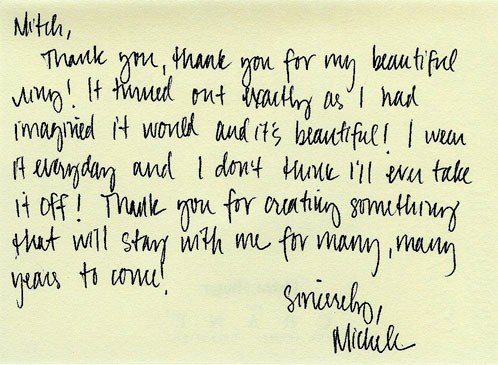 Mitch,
Thank you, thank you for my beautiful
ring! It turned out exactly as I had
imagined it would and it's beautiful! I wear
it everyday and I don't think I'll ever take
it off! Thank you for creating something
that will stay with me for many, many
years to come!
Sincerely,
Michele